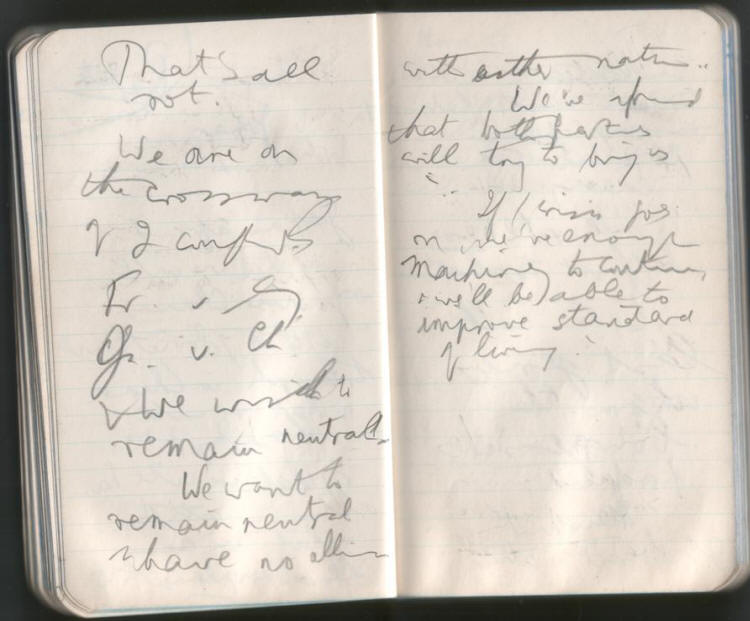 That's all
rot.
We are on
the crossways
of 2 conflicts
Fr. v
v. Ch
& We wish to
remain neutral.
We want to
remain neutral
& have no allian
with other nation..
We've
that both parties
will try to bring us
in..
If crisis goes
on we've enough
machinery to continue,
& we'll be able to
improve standard
of living.